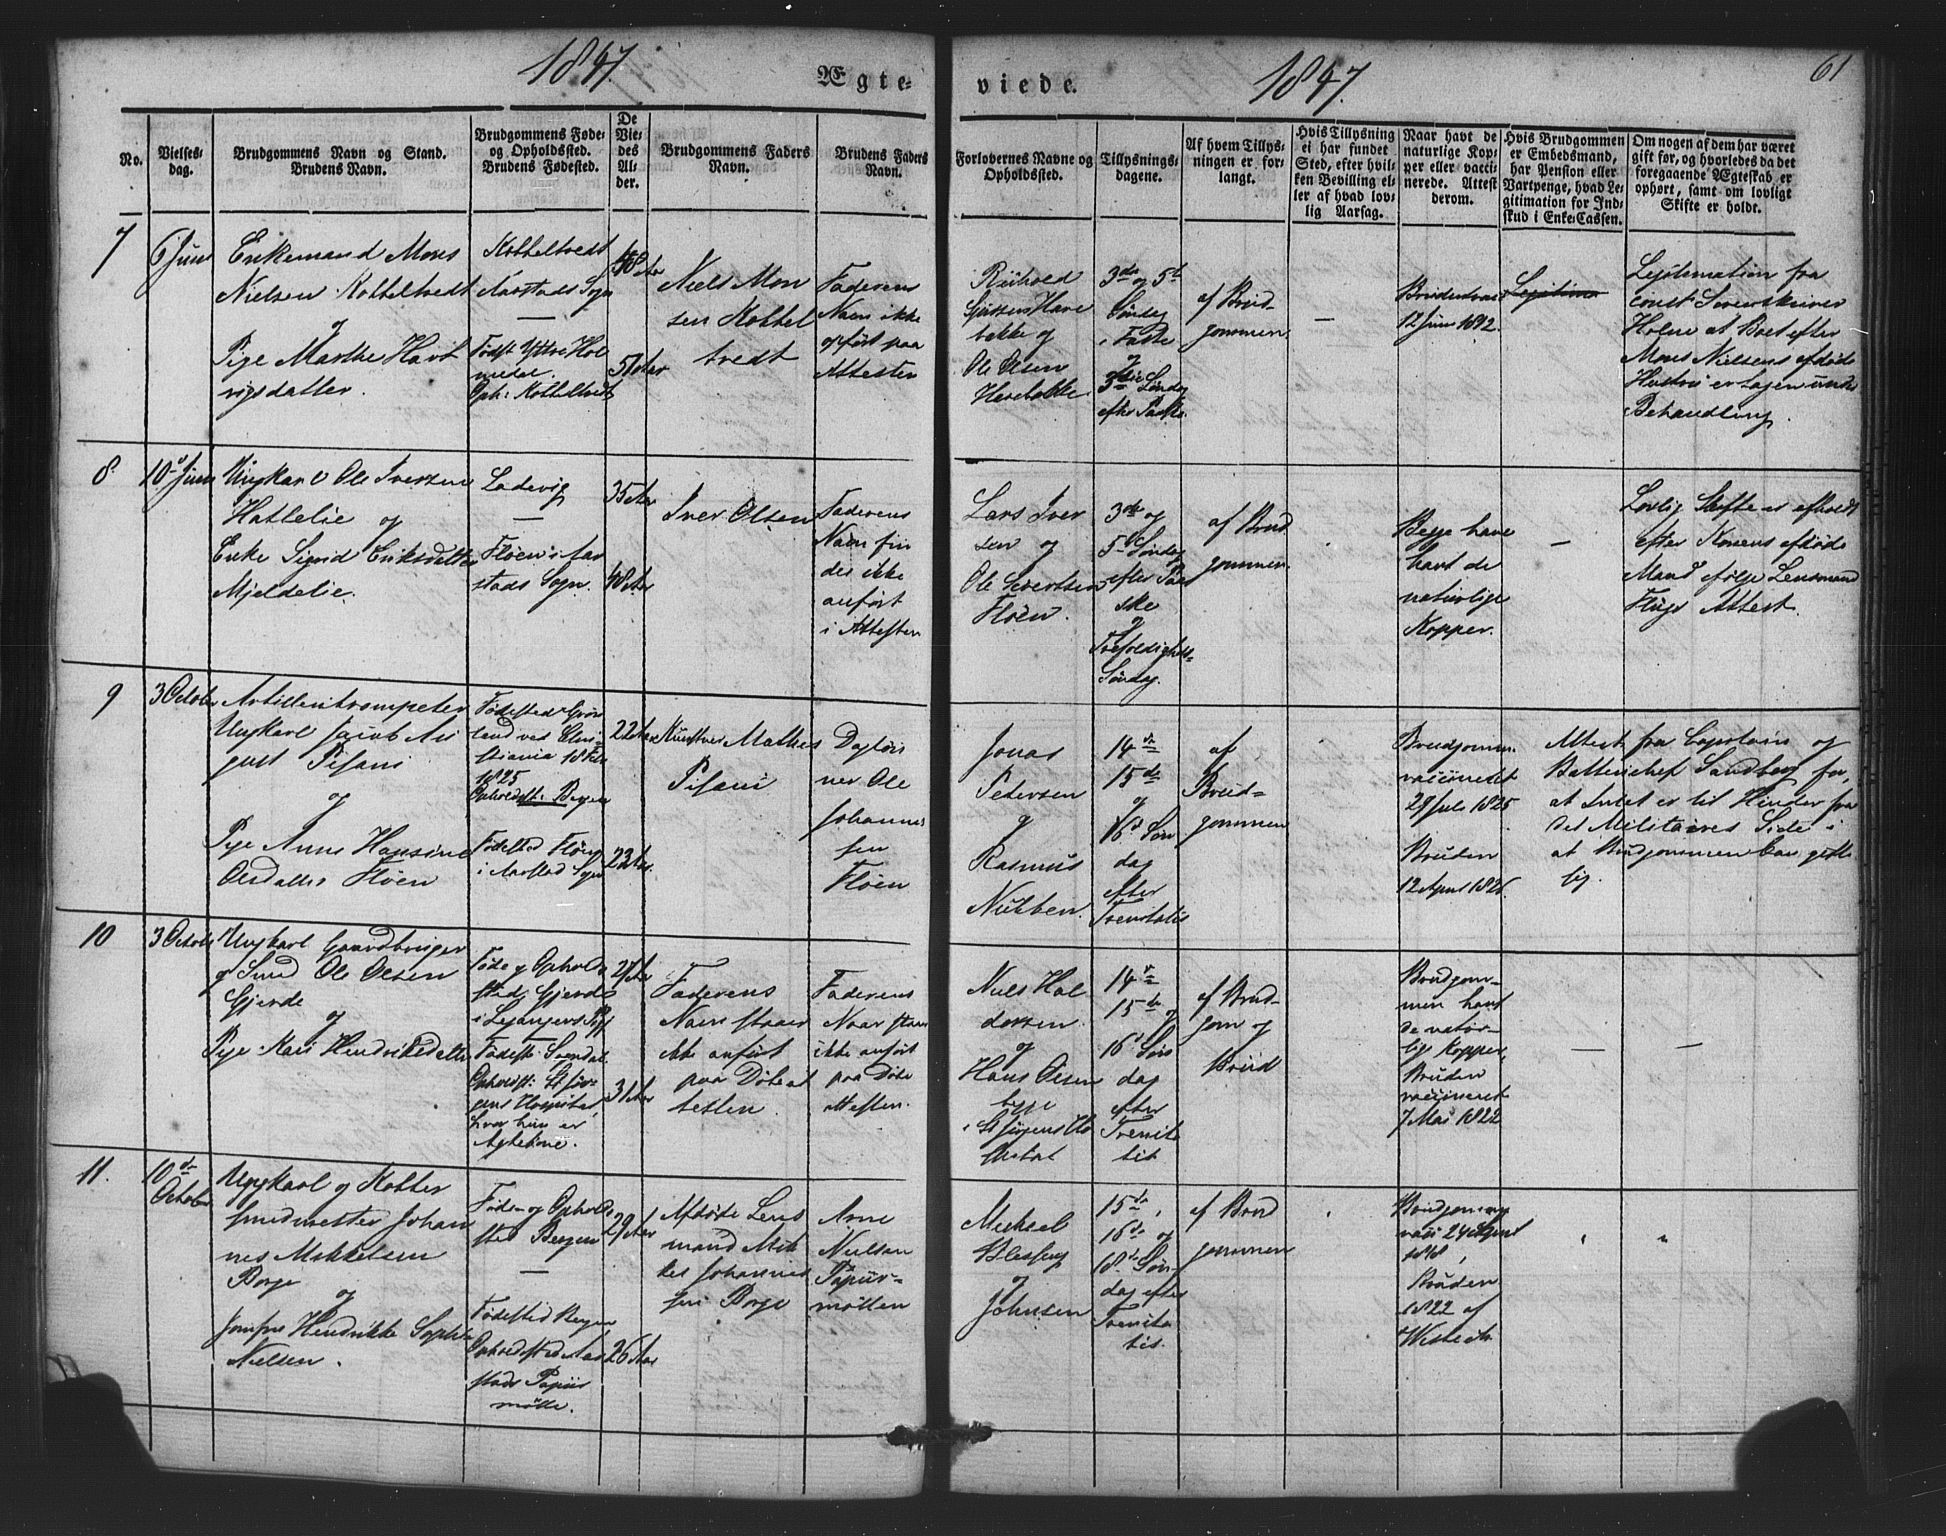 1847.
Ægte-
viede.
1847.
61
No.
Vielses-
dag.
Brudgommens Navn og Stand.
Brudens Navn.
Brudgommens Føde-
og Opholdssted.
Brudens Fødested.
De
Vie-
des
Al-
der.
Brudgommens Faders
Navn.
Brudens Faders
Navn.
Forlovernes Navne og
Opholdssted.
Tillysnings-
dagene.
Af hvem Tillys-
ningen er for-
langt.
Hvis Tillysning
ei har fundet
Sted, efter hvil-
ken Bevilling el-
ler af hvad lov-
lig Aarsag.
Naar havt de
naturlige Kop-
per eller vacci-
nerede. Attest
derom.
Hvis Brudgommen
er Embedsmand,
har Pension eller
Vartpenge, hvad Le-
gitimation for Ind-
skud i Enke-Cassen.
Om nogen af dem har været
gift før, og hvorledes da det
foregaaende Ægteskab er
ophørt, samt om lovligt
Skifte er holdt.
7
6 Juni
Enkemand Mons
Nielsen Kolteltvedt
og
Pige Marthe Havt
vigsdatter.
Kolteltvedt
Aarstads Sogn
Født Yttre Hol
medal.
Oph: Kolteltvedt
48 Aar
51 Aar
Niels Mon
sen Koltel
tvedt
Faderens
Navn ikke
opført paa
Attesten
Ole Olsen
3die og 5te
Søndag
i Faste
og
3die Søndag
efter Paaske.
af Brud-
gommen
12 Juni 1812.
Legitima
Legitimation fra
const. Sorenskriver
Holm at Boet efter
Mons Nielsens afdøde
Hustru er tagen under
Behandling.
8.
10 Juni
Ungkarl Ole Iversen
Hattelie og
Enke Sigrid Eriksdatter
Mjeldelie.
Ladevig
Fløen i Aar
stads Sogn.
35 Aar
48 Aar
Iver Olsen
Faderens
Navn fin
des ikke
anført
i Attesten
Lars Iver
sen og
Ole Sivertsen
Fløen.
3die og
5 Søndag
efter Paa
ske
og
Trefoldigheds-
Søndag.
af Brud
gommen.
Begge have
havt de
naturlige
Kopper.
Lovlig Skifte er afholdt
efter Konens afdøde
Mand ifølge Lensmand
Flugs Attest.
9
3 October
Artilleritrompeter
Ungkarl Jacob Au
gust Pisani
og
Pige Anne Hansine
Olsdatter Fløen
Fødested Grøn
land ved Chri-
stiania 18 Feb
1825
Opholdsst: Bergen
Fødested Fløen
i Aarstad Sogn
22 Aar
23 Aar.
Kunstner Mathias
Pisani
Dagløn
ner Ole
Johannes
sen
Fløen
Jonas
Petersen
og
Rasmus
Nubben.
14de
15de
og
16de Søn
dag
efter
Trenitatis
af
Brud-
gommen
Brudgomm.
vaccineret
29 Juli 1825
Bruden
12 April 1826.
Attest fra Capitain og
Batterichef Sandberg for,
at Intet er til Hinder fra
det Militaires Side i
at Brudgommen kan gifte
sig.
10
3 October
Ungkarl Gaardbruger
og Smed Ole Olsen
Gjerde
og
Pige Kari Hendriksdatter
Føde og Opholds
sted: Gjerde
Fødest: Sogndal
Opholdst: St Jør-
gens Hospital,
hvor hun er
27 Aar
31 Aar
Faderens
Navn staaer
ikke anført
paa Døbeat
testen.
Faderens
Navn staaer
ikke anført
paa Døbe
attesten.
Niels Hal
dorsen
og
Hans Olsen
begge
i St Jørgens Ho
spital
14de
15de og
16de Søn
dag
efter
Trenita
tis
af Brud-
gom og
Brud
Brudgom-
men havt
de natur-
lige Kopper,
Bruden
vaccineret
7 Mai 1822
11.
10de
October
Ungkarl og Kobber
smedmester Johan
nes Mikkelsen
Borge
og
Jomfru Hendrikke Sophie
Nielsen.
Føde- og Opholds
sted Bergen
Fødested Bergen
Opholdssted Aar
stads Papiir
mølle.
29 Aar
26 Aar
Afdøde Lens
mand Mik
kel Johannes
sen Borge
Arne
Nielsen
Papiir-
møllen
Michael
og
Johnsen
15de,
16de og
18de Søn
dag efter
Trenita
tis.
af Brud
gommen
Brudgommen
vacc 24 August
1818,
Bruden
1822 af